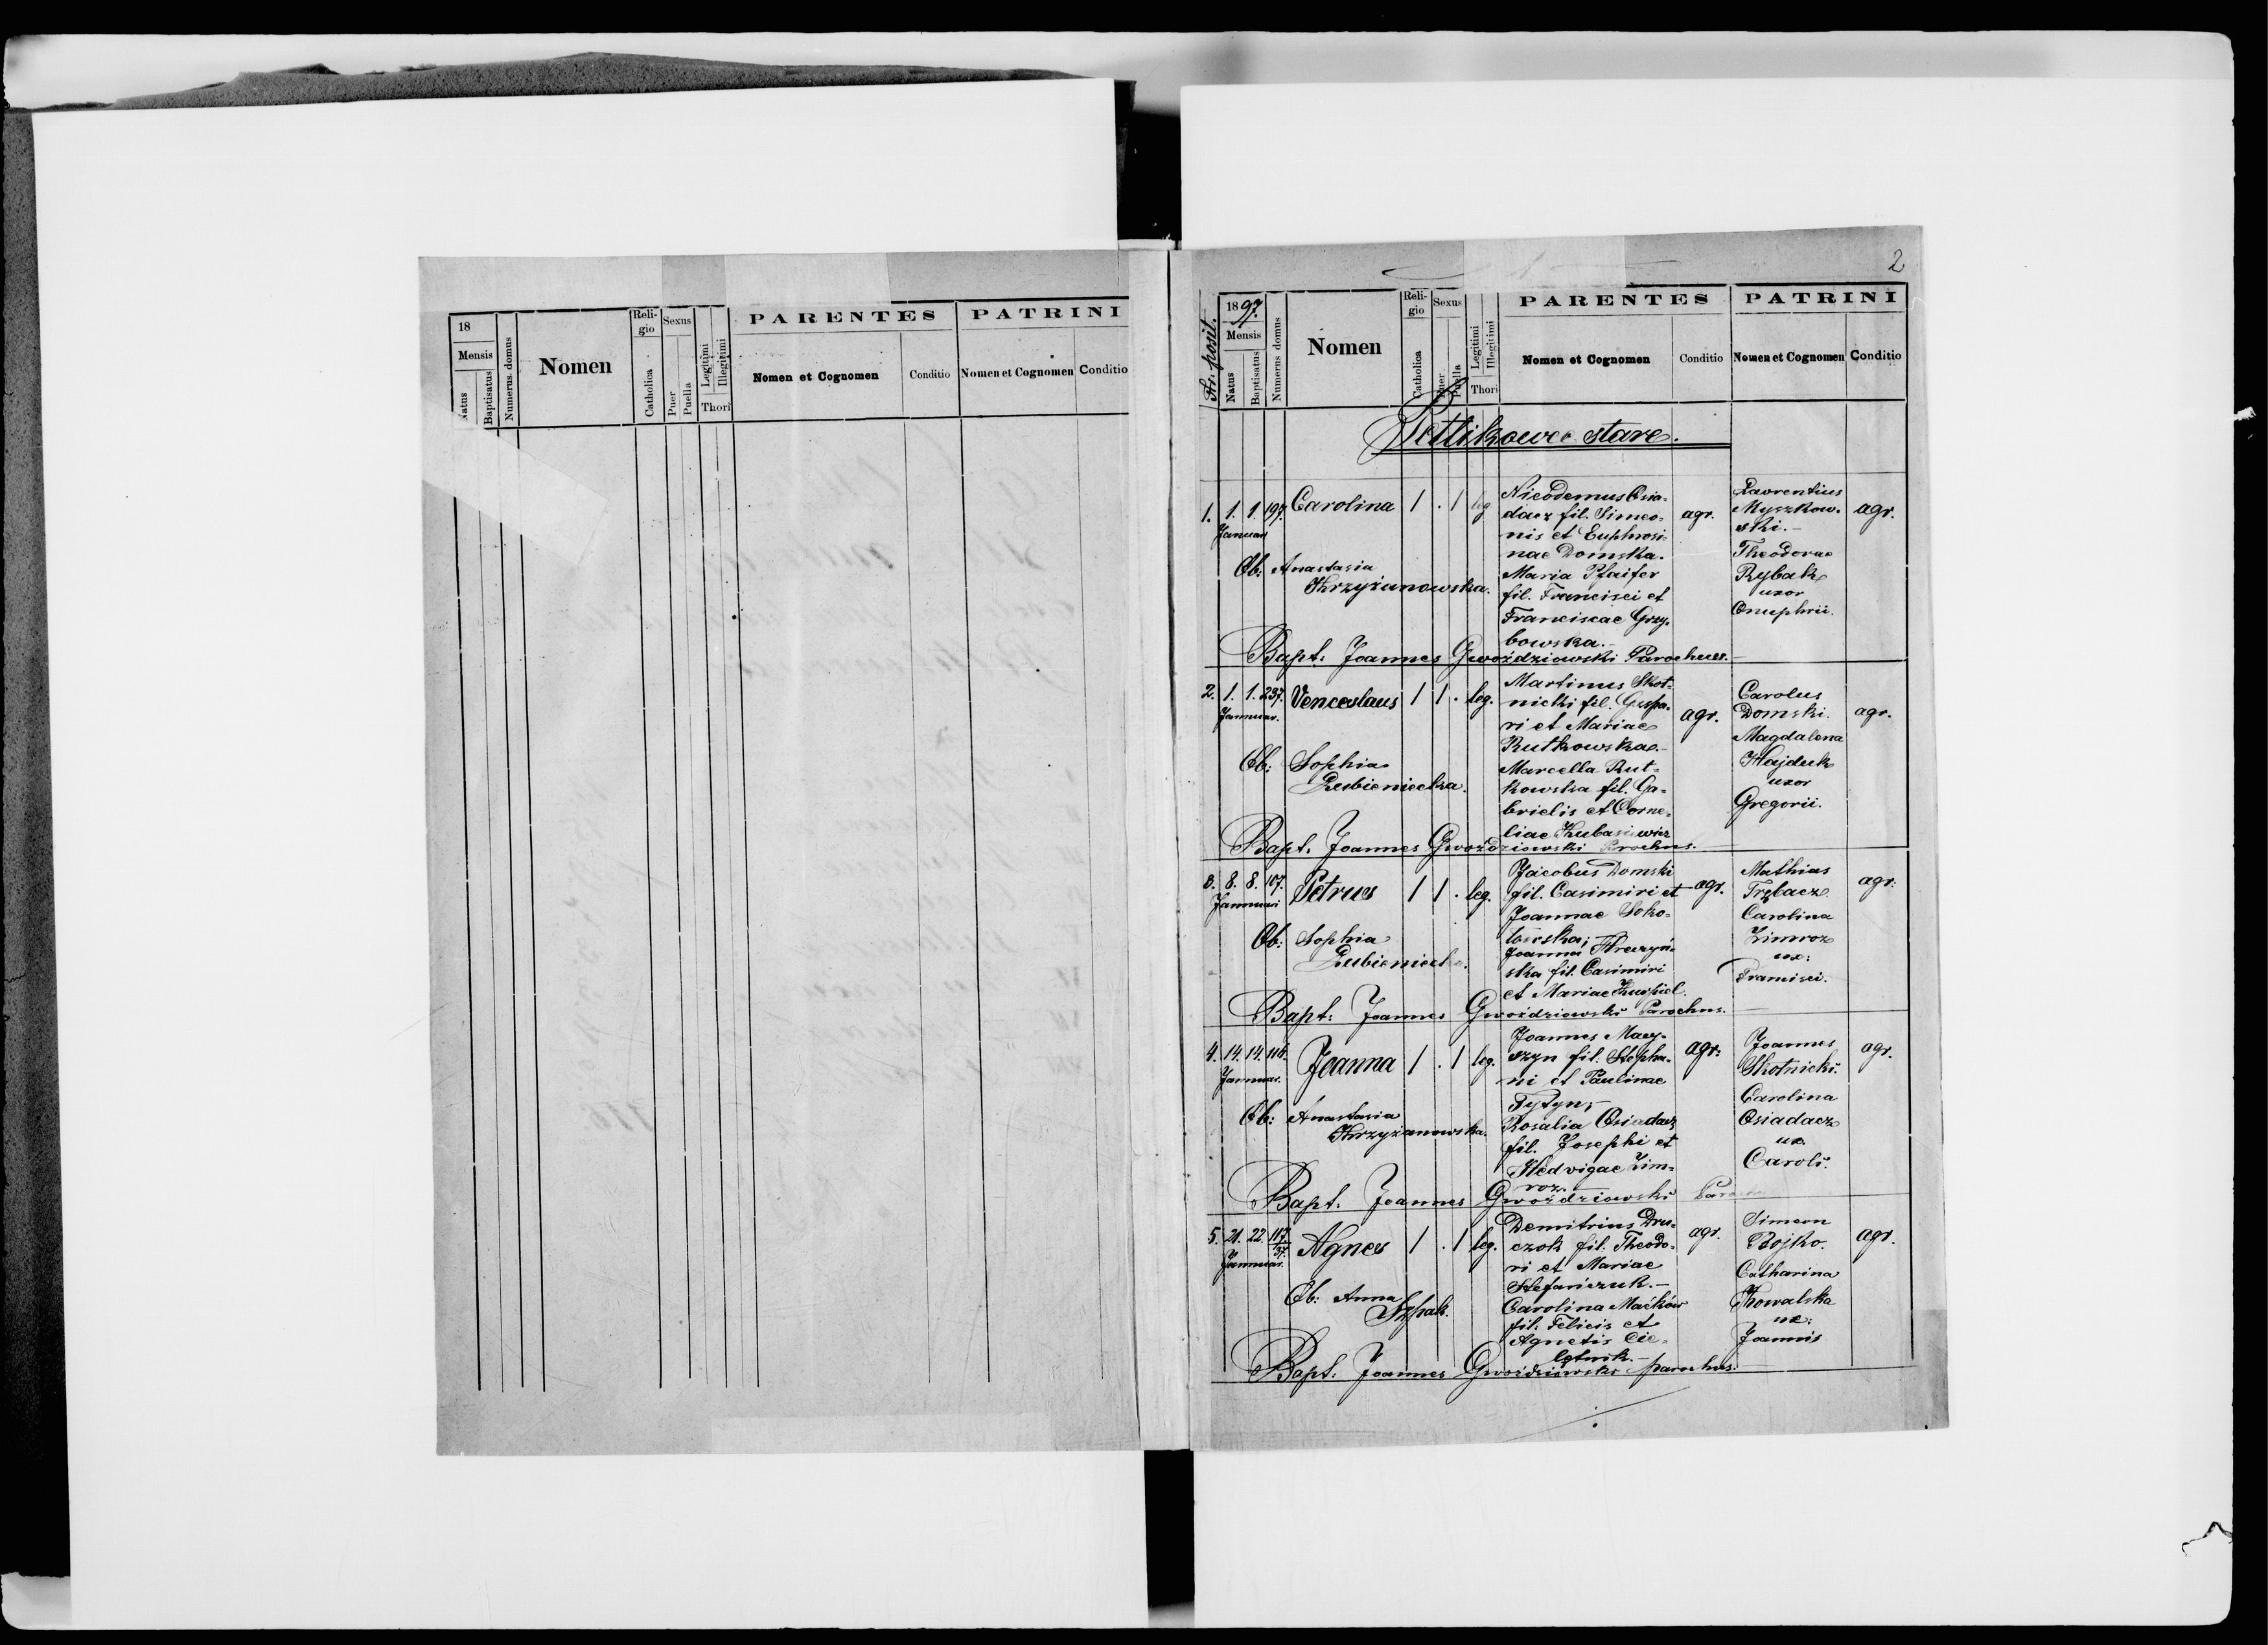 18
Mensis
Natus
Baptisatus
Numerus domus
Nomen
Reli-
gio
Catholica
Sexus
Puer
Puella
Legitimi
Illegitimi
Thori
PARENTES
Nomen et Cognomen
Conditio
PATRINI
Nomen et Cognomen
Conditio
2
Nr. posit.
1897.
Mensis
Natus
Baptisatus
Numerus domus
Nomen
Reli-
gio
Catholica
Sexus
Puer
Puella
Legitimi
Illegitimi
Thori
PARENTES
Nomen et Cognomen
Conditio
PATRINI
Nomen et Cognomen
Conditio
Petlikowce stare.
1. 1. 1. 197. Carolina 1 . 1 leg
Januar
Ob: Anastasia
Krzyżanowska.
Nicodemus Osia-
dacz fil. Simeo-
nis et Euphrosi-
nae Domska.
Maria Pfaifer
fil. Francisci et
Franciscae Grzy-
bowska.
agr.
Laurentius
Myszkow-
ski.-
Theodorae
Rybak
uxor
Onuphrii.
agr.
Bapt: Joannes Gwoździowski Parochus.
2. 1. 1. 237. Venceslaus 1 1 . leg.
Januar.
Ob: Sophia
Łubieniecka.
Martinus Skot-
nicki fil. Gaspa-
ri et Mariae
Rutkowska.-
Marcella Rut-
kowska fil. Ga-
brielis et Corne-
liae Kubasiewicz
agr.
Carolus
Domski.
Magdalena
Hajduk
uxor
Gregorii.
agr.
Bapt. Joannes Gwoździowski Parochus.
3. 8. 8. 107. Petrus 1 1 . leg.
Januari
Ob: Sophia
Łubieniecka.
Jacobus Domski
fil. Casimiri et
Joannae Soko-
Joanna
ska fil. Casimiri
et Mariae
agr.
Mathias
Trębacz.
Carolina
Zimroz
ux:
Francisci.
agr:
Bapt: Joannes Gwoździowski Parochus.
4. 14. 14. 116. Joanna 1 . 1 leg.
Januar.
Ob: Anastasia
Krzyżanowska.
Joannes Mary-
szyn fil. Stepha-
ni et Paulinae
Tytyn;-
Rosalia Osiadacz
fil. Josephi et
Hedvigae Zim-
roz.
agr:
Joannes
Skotnicki.
Carolina
Osiadacz
ux.
Caroli.
agr.
Bapt: Joannes Gwoździowski
5. 21. 22. 117/37. Agnes 1 . 1 leg.
Januar.
Ob: Anna
Szpak.
Demitrius Dru-
czok fil. Theodo-
ri et Mariae
Stefańczuk.-
Carolina Maćków
fil. Felicis et
Agnetis Cie-
agr.
Simeon
Bojko.
Catharina
Kowalska
ux:
Joannis
agr.
Bapt: Joannes Gwoździowski parochus.